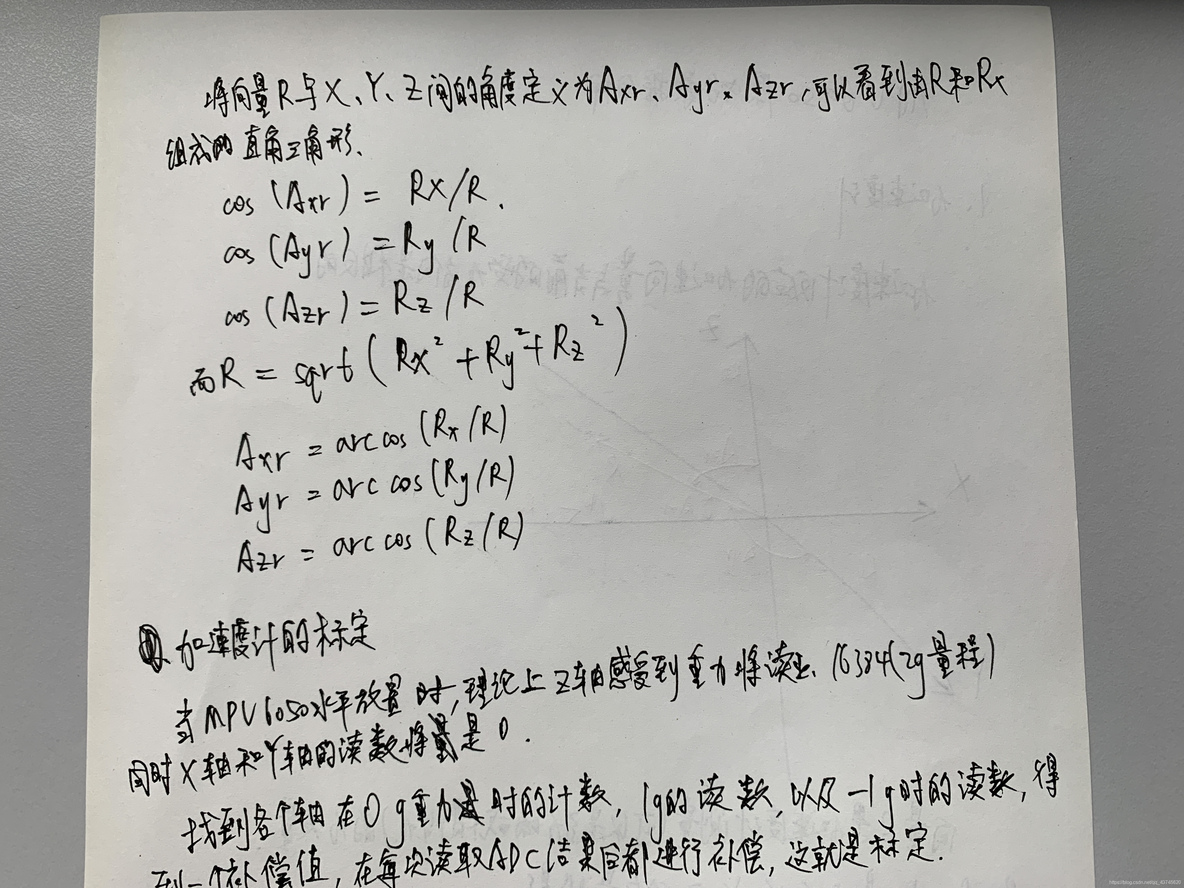 将向量R与X、Y、Z间的角度定义为Axr、Ayr、Azr,可以看到由R和Rx
组成的直角三角形、
cos (Axr) = Rx/R.
cos (Ayr) = Ry/R
cos (Azr) = Rz/R
而R = sqrt(Rx²+Ry²+Rz²)
Axr = arccos(Rx/R)
Ayr = arccos(Ry/R)
Azr = arccos(Rz/R)
加速度计的标定
当MPU6050水平放置时,理论上Z轴感受到重力将读出 16384(2g量程)
同时X轴和Y轴的读数将是0.
找到各个轴在0g重力是时的计数,1g的读数,以及-1g时的读数,得
到一个补偿值,在每次读取ADC结果后都进行补偿,这就是标定.